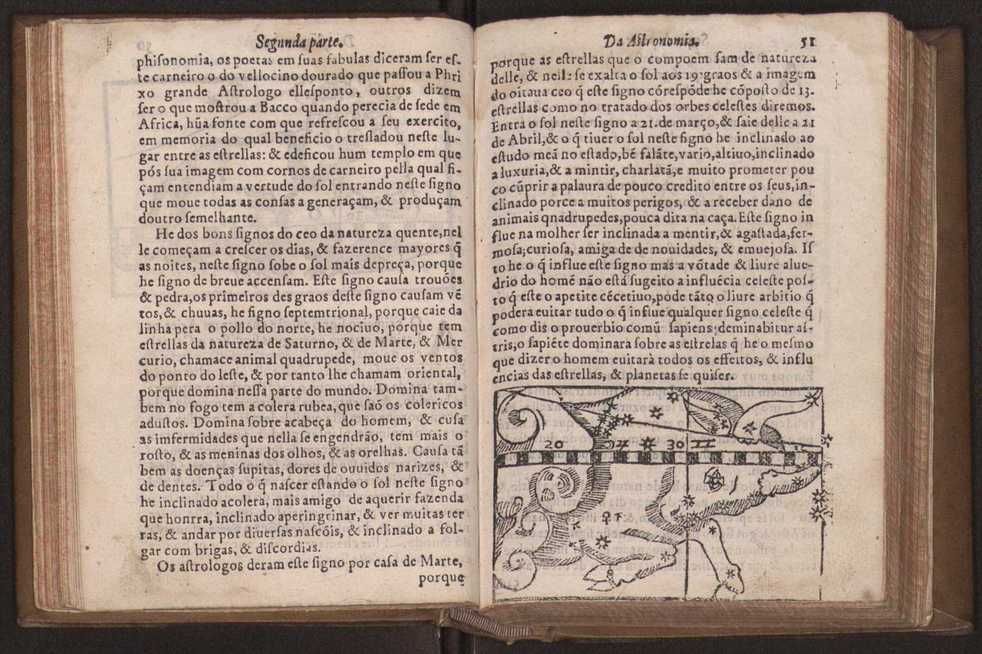 Segunda parte.
phisonomia, os poetas em suas fabulas diceram ser es-
te carneiro o do vellocino dourado que passou a Phri
xo grande Astrologo ellesponto, outros dizem
ser o que mostrou a Bacco quando perecia de sede em
Africa, hũa fonte com que refrescou a seu exercito,
em memoria do qual beneficio o tresladou neste lu-
gar entre as estrellas: & edeficou hum templo em que
pós sua imagem com cornos de carneiro pella qual fi-
çam entendiam a vertude do sol entrando neste signo
que moue todas as consas a generaçam, & produçam
doutro semelhante.
He dos bons signos do ceo da natureza quente, nel
le começam a crescer os dias, & fazerence mayores q̃
as noites, neste signo sobe o sol mais depreça, porque
he signo de breue accensam. Este signo causa trouões
& pedra, os primeiros des graos deste signo causam vẽ
tos, & chuuas, he signo septemtrional, porque caie da
linha pera o pollo do norte, he nociuo, porque tem
estrellas da natureza de Saturno, & de Marte, & Mer
curio, chamace animal quadrupede, moue os ventos
do ponto do leste, & por tanto lhe chamam oriental,
porque domina nessa parte do mundo. Domina tam-
bem no fogo tem a colera rubea, que saõ os colericos
adustos. Domina sobre acabeça do homem, & cusa
as imfermidades que nella se engendrão, tem mais o
rosto, & as meninas dos olhos, & as orelhas. Causa tã
bem as doenças supitas, dores de ouuidos narizes, &
de dentes. Todo o q̃ nascer estando o sol neste signo
he inclinado acolera, mais amigo de aquerir fazenda
que honrra, inclinado aperingrinar, & ver muitas ter
ras, & andar por diuersas nascóis, & inclinado a fol-
gar com brigas, & discordias.
Os astrologos deram este signo por casa de Marte,
porque
Da Astronomia. 51
porque as estrellas que o compoem sam de natureza
delle, & nelle se exalta o sol aos 19 graos & a imagem
do oitaua ceo q̃ este signo córespóde he cõposto de 13.
estrellas como no tratado dos orbes celestes diremos.
Entra o sol neste signo a 21. de março, & saie delle a 21
de Abril, & o q̃ tiuer o sol neste signo he inclinado ao
estudo meã no estado, bẽ falãte, vario, altiuo, inclinado
a luxuria, & a mintir, charlatã, e muito prometer pou
co cũprir a palaura de pouco credito entre os seus, in-
clinado porce a muitos perigos, & a receber dano de
animais qnadrupedes, pouca dita na caça. Este signo in
flue na molher ser inclinada a mentir, & agastada, fer-
mosa; curiosa, amiga de de nouidades, & emuejosa. Is
to he o q̃ influe este signo mas a võtade & liure alue-
drio do homẽ não está sugeito a influẽcia celeste pos-
to q̃ este o apetite cécetiuo, pode tãto o liure arbitio q̃
podera euitar tudo o q̃ influe qualquer signo celeste q̃
como dis o prouerbio comũ sapiens; deminabitur as-
tris, o sapiẽte dominara sobre as estrelas q̃ he o mesmo
que dizer o homem euitarà todos os effeitos, & influ
encias das estrellas, & planetas se quiser.
20 30